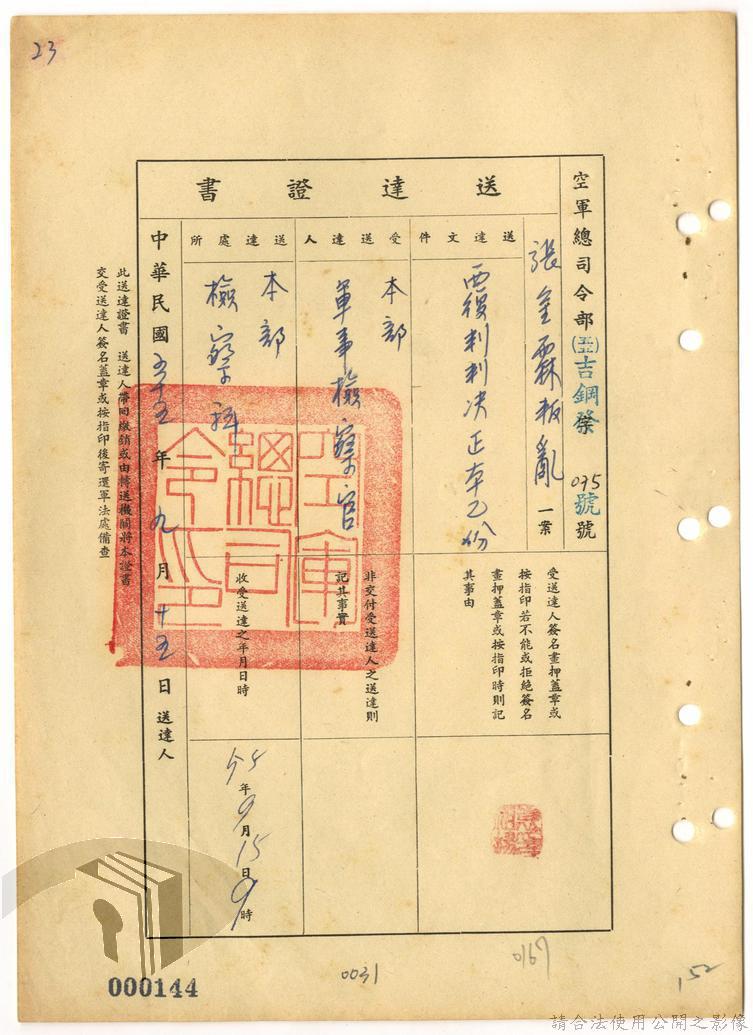 23
空軍總司令部(五五)吉鋼發字075號號
送達證書
張金霖叛亂一案
送達文件
覆判判決正本乙份
受送達人
本部
軍事檢察官
送達處所
本部
檢察科
受送達人簽名畫押蓋章或
按指印若不能或拒絕簽名
畫押蓋章或按指印時則記
其事由
非交付受送達人之送達則
記其事實
收受送達之年月日時
55年9月15日9時
中華民國五十五年九月十五日送達人
此送達證書 送達人帶回繳銷或由轉送機關將本證書
交受送達人簽名蓋章或按指印後寄還軍法處備查
空軍總司令印
000144
0031
0167
152
請合法使用公開之影像